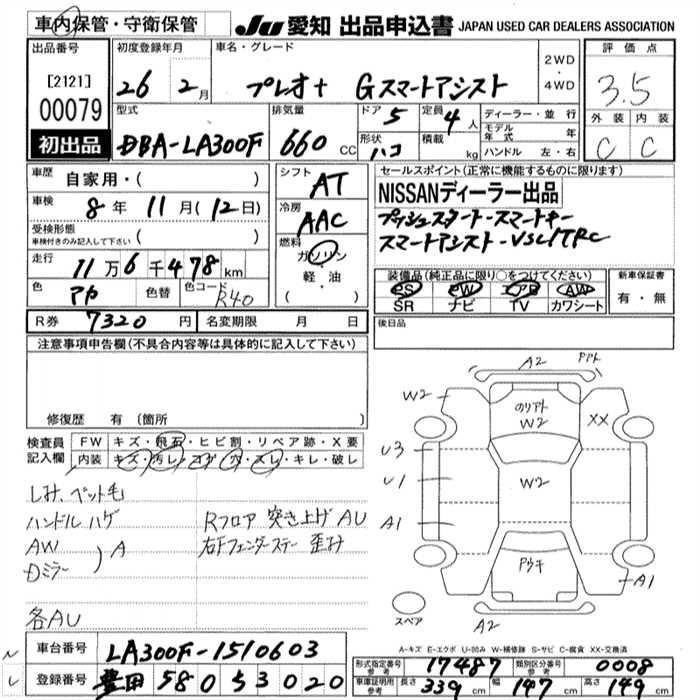 車内保管・守衛保管 JU 愛知 出品申込書 JAPAN USED CAR DEALERS ASSOCIATION
出品番号 初度登録年月 車名・グレード 評価点
[2121] 26 2月 プレオ+ Gスマートアシスト 2WD・4WD 3.5
00079 型式 排気量 ドア 5 定員 4人 ディーラー・並行 外装 内装
初出品 DBA-LA300F 660 CC 形状 ハコ 積載 kg モデル年式 年 C C
ハンドル 左・右
車歴 自家用・( ) シフト AT セールスポイント(正常に機能するものに限ります)
車検 8年 11月(12日) 冷房 AAC NISSANディーラー出品
受検形態 車検付きのみ記入して下さい ( ) プッシュスタート・スマートキー
燃料 ガソリン スマートアシスト・VSC/TRC
走行 11万6千478km 軽・油
色 アカ 色替 色コード R40 ( )
装備品(純正品に限り○をつけてください) 新車保証書
PS PW エアB AW 有・無
SR ナビ TV カワシート
R券 7320円 名変期限 月 日 後日品
注意事項申告欄(不具合内容等は具体的に記入して下さい)
修復歴 有 (箇所 )
検査員記入欄 FW キズ・飛石・ヒビ割・リペア跡・X要
内装 キズ・汚レ・コゲ・穴・スレ・キレ・破レ
シミ、ペット毛
ハンドル ハゲ Rフロア 突き上げ AU
AW 右Fフェンダーステー 歪み
Dミラー ) A
各AU
A2
W2 W2 XX
U3
U1 W2
A1
A1
スペア A2
A-キズ E-エクボ U-凹み W-補修跡 S-サビ C-腐食 XX-交換済
車台番号 LA300F-1510603 形式指定番号 参考 17487 類別区分番号 参考 0008
登録番号 豊田 580 53020 車庫証明用 参考 長さ 339cm 幅 147cm 高さ 149cm